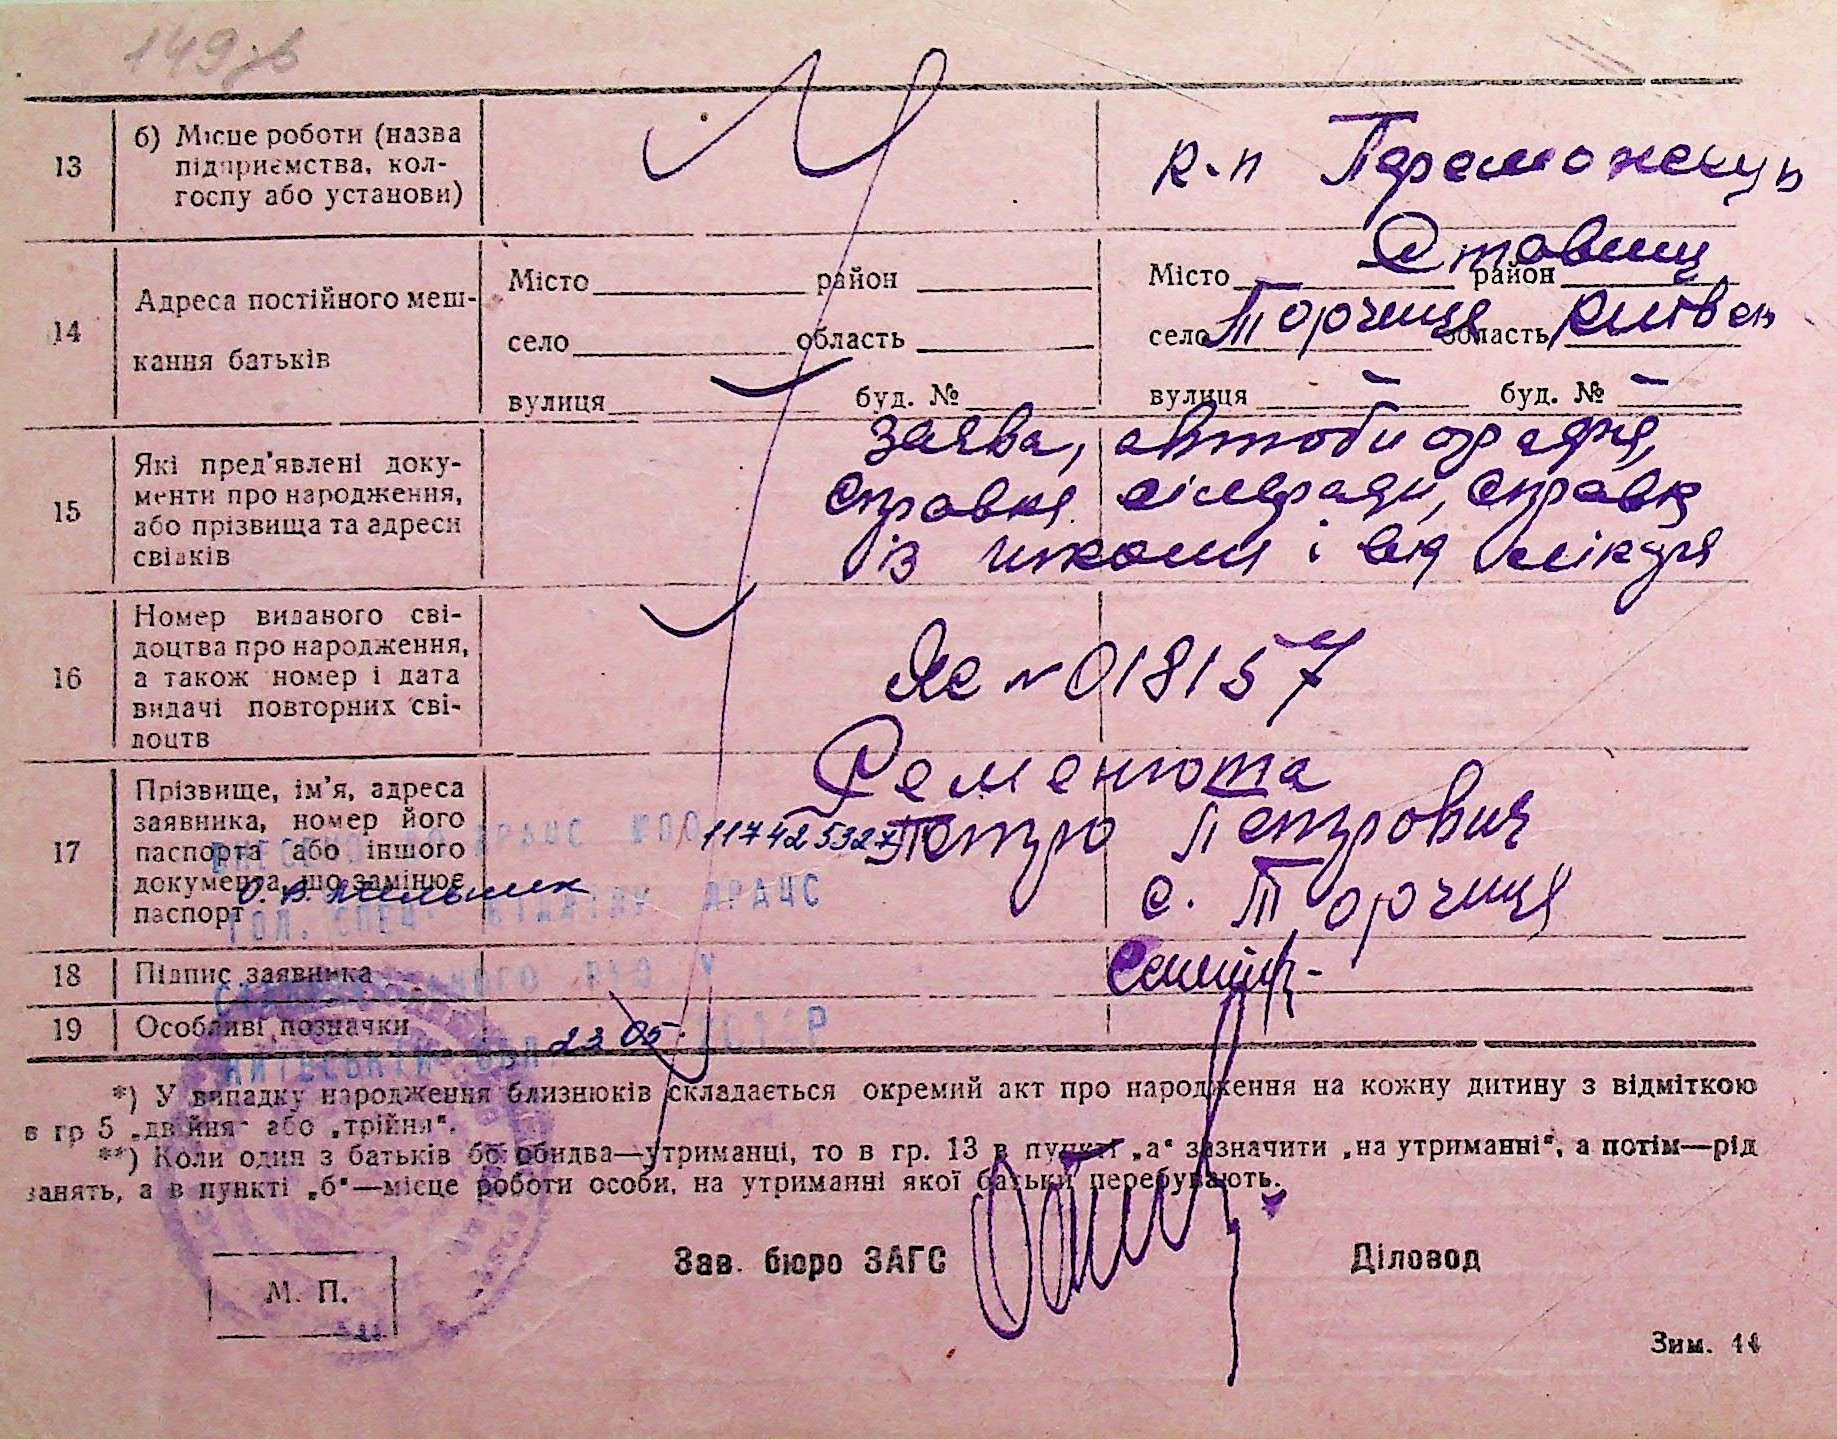 149 зв
13 б) Місце роботи (назва підприємства, кол-
госпу або установи)
к-п Переможець
14 Адреса постійного меш-
кання батьків
Місто район Місто район Ставищ
село область село Торчиця область Київськ
вулиця буд. № вулиця – буд. № –
15 Які пред'явлені доку-
менти про народження,
або прізвища та адреси
свідків
заява, автобіографія,
справка сільради, справка
із школи і від лікаря
16 Номер виданого сві-
доцтва про народження,
а також номер і дата
видачі повторних сві-
доцтв
№ 018157
17 Прізвище, ім'я, адреса
заявника, номер його
паспорта або іншого
документа, що замінює
паспорт
Ременюта
Петро Петрович
с. Торчиця
117425327
ДРАЦС
18 Підпис заявника
19 Особливі позначки
23 05
*) У випадку народження близнюків складається окремий акт про народження на кожну дитину з відміткою
в гр 5 „двійня" або „трійня".
**) Коли один з батьків бо обидва—утриманці, то в гр. 13 в пункті „а" зазначити „на утриманні", а потім—рід
занять, а в пункті „б"—місце роботи особи, на утриманні якої батьки перебувають.
Зав. бюро ЗАГС Діловод
М. П.
Зим. 44